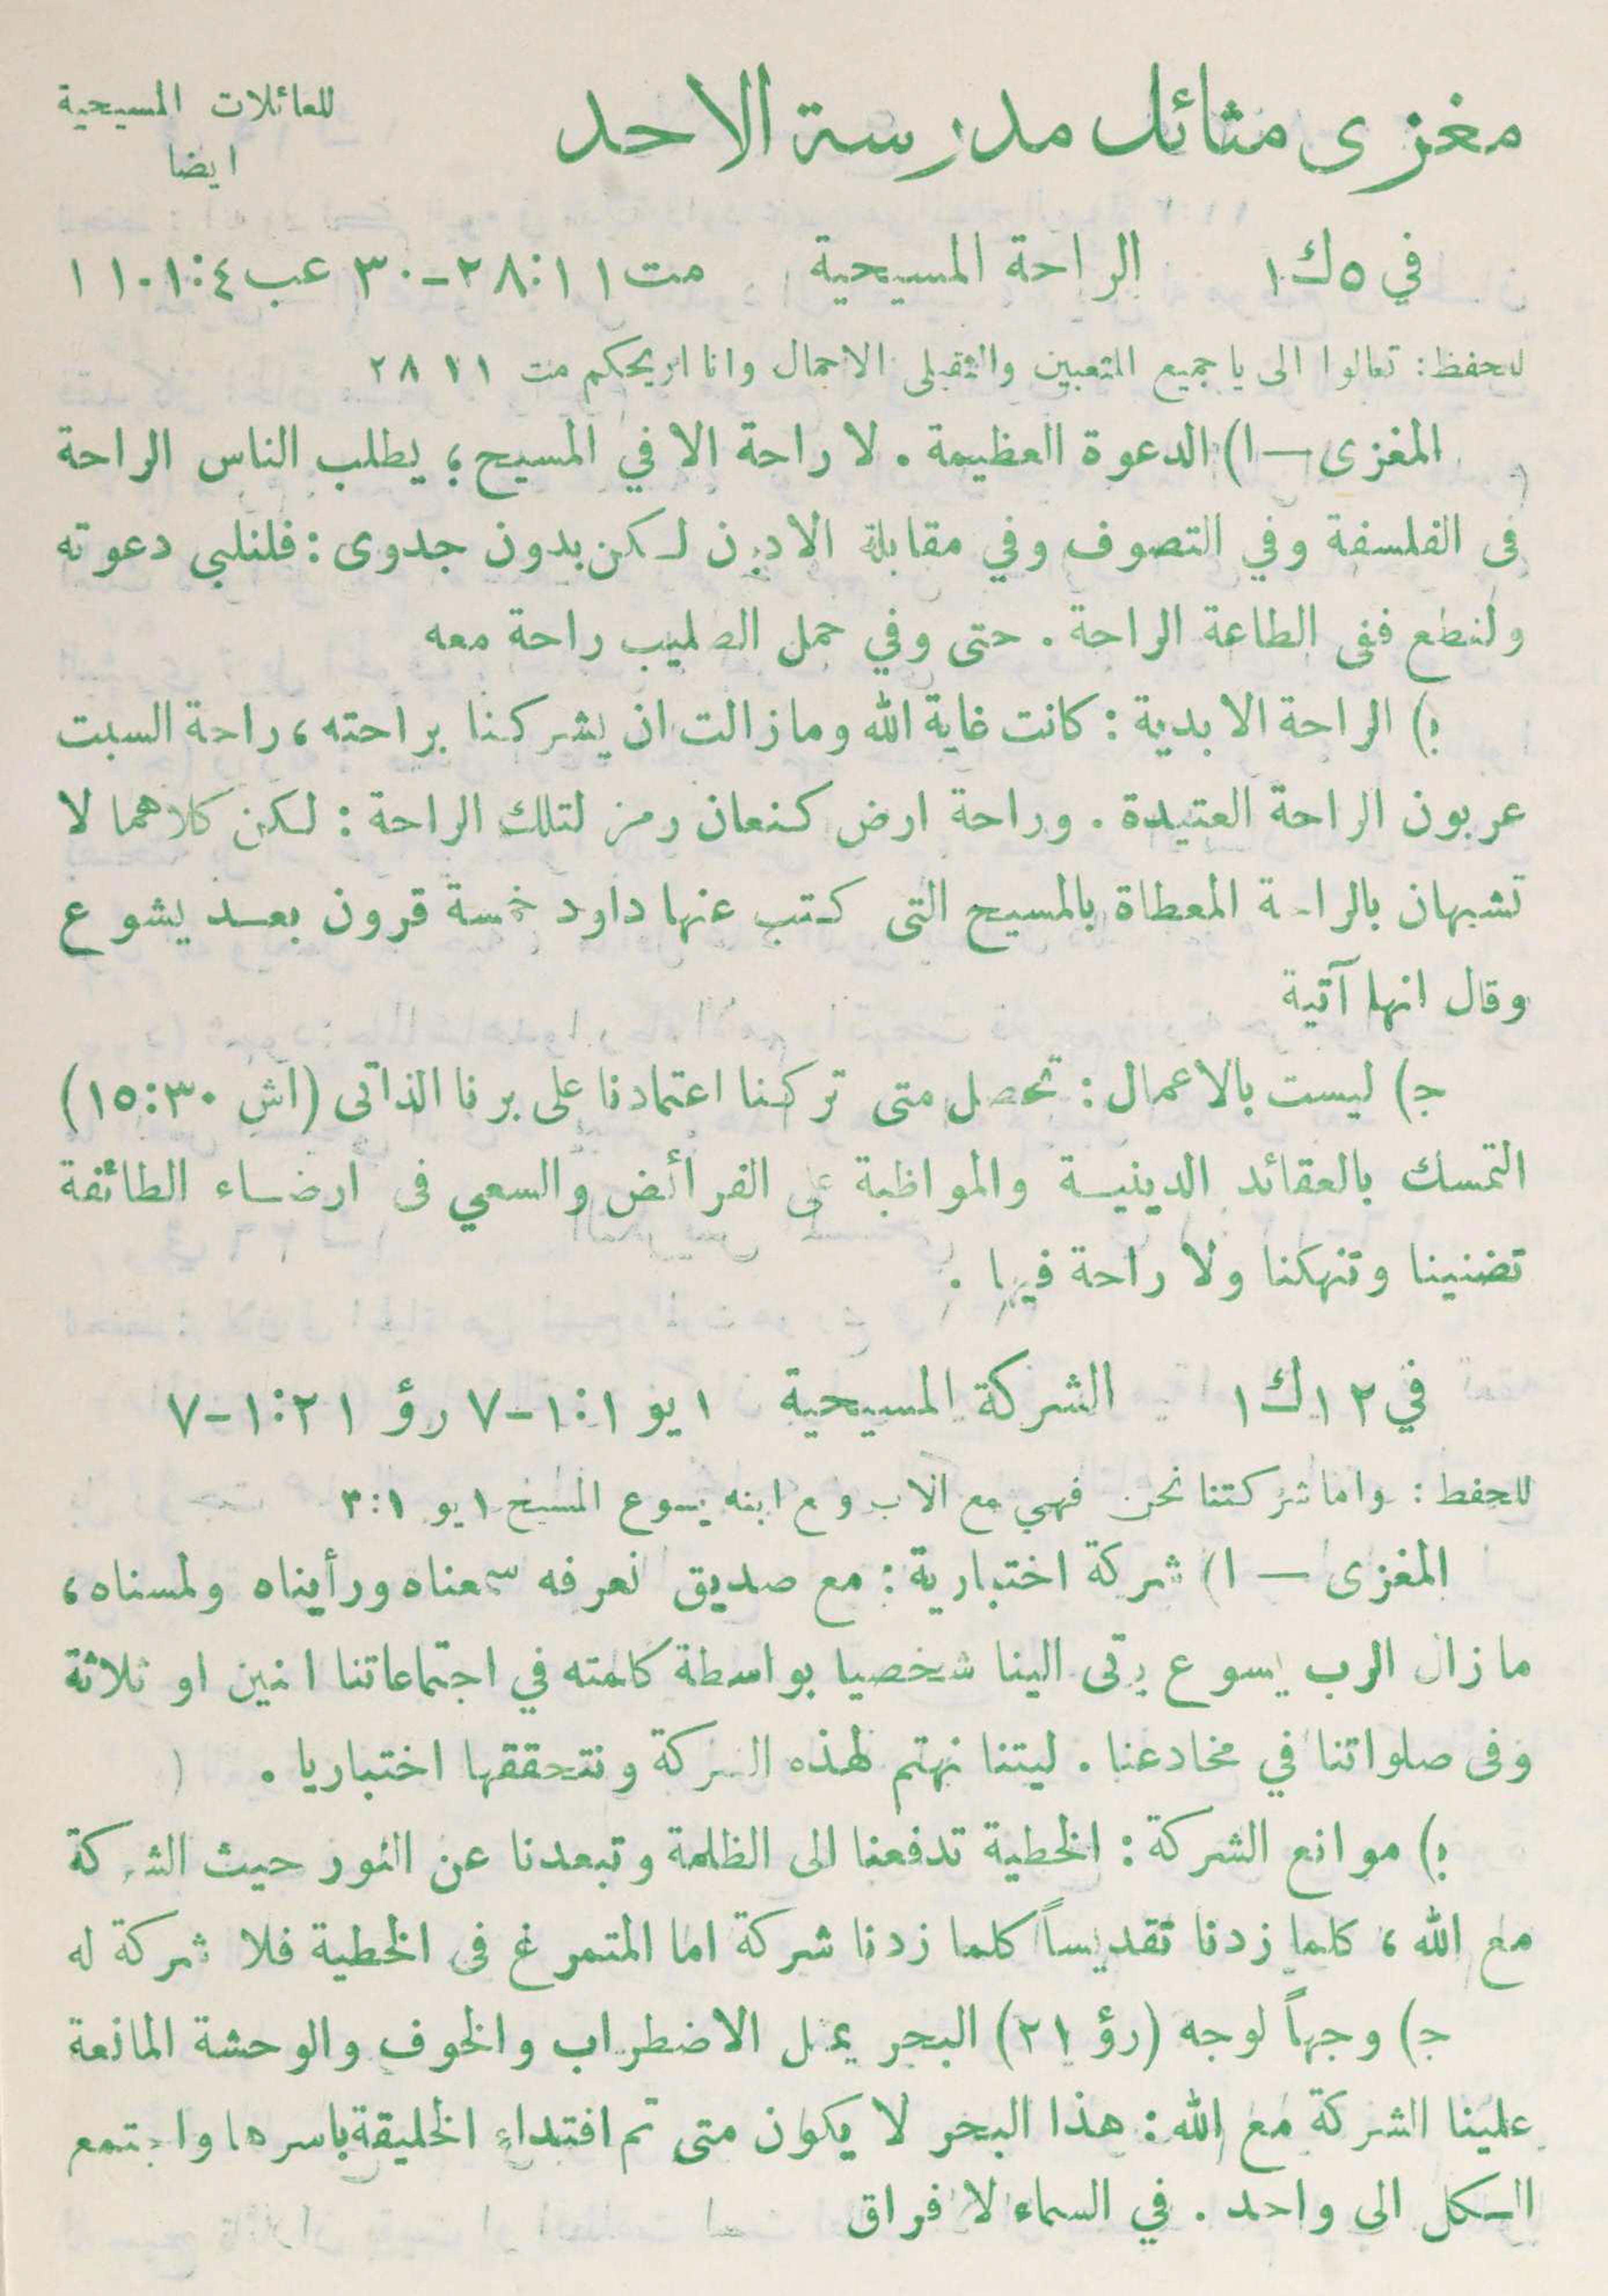 مغزى مثائل مدرسة الاحد
للعائلات المسيحية
ايضا
في ٥ ك١ الراحة المسيحية مت ١١:٢٨-٣٠ عب ٤:١-١١
للحفظ: تعالوا الى يا جميع المتعبين والثقيلى الاحمال وانا اريحكم مت ١١ ٢٨
المغزى — ا) الدعوة العظيمة. لا راحة الا في المسيح، يطلب الناس الراحة
فى الفلسفة وفي التصوف وفي مقابلة الاديان لكن بدون جدوى: فلنلبي دعوته
ولنطع ففى الطاعة الراحة. حتى وفي حمل الصليب راحة معه
ب) الراحة الابدية: كانت غاية الله وما زالت ان يشركنا براحته، راحة السبت
عربون الراحة العتيدة. وراحة ارض كنعان رمز لتلك الراحة: لكن كلاهما لا
تشبهان بالراحة المعطاة بالمسيح التى كتب عنها داود خمسة قرون بعد يشوع
وقال انها آتية
ج) ليست بالاعمال: تحصل متى تركنا اعتمادنا على برنا الذاتى (اش ٣٠:١٥)
التمسك بالعقائد الدينية والمواظبة على الفرائض والسعي فى ارضاء الطائفة
تضنينا وتنهكنا ولا راحة فيها.
في ١٢ ك١ الشركة المسيحية ١يو ١:١-٧ رؤ ٢١:١-٧
للحفظ: واما شركتنا نحن فهي مع الاب ومع ابنه يسوع المسيح ١يو ١:٣
المغزى — ا) شركة اختبارية: مع صديق نعرفه سمعناه ورأيناه ولمسناه،
ما زال الرب يسوع يأتى الينا شخصيا بواسطة كلمته في اجتماعاتنا اثنين او ثلاثة
وفى صلواتنا في مخادعنا. ليتنا نهتم لهذه الشركة ونتحققها اختباريا.
ب) موانع الشركة: الخطية تدفعنا الى الظلمة وتبعدنا عن النور حيث الشركة
مع الله، كلما زدنا تقديساً كلما زدنا شركة اما المتمرغ فى الخطية فلا شركة له
ج) وجهاً لوجه (رؤ ٢١) البحر يمثل الاضطراب والخوف والوحشة المانعة
علينا الشركة مع الله: هذا البحر لا يكون متى تم افتداء الخليقة باسرها واجتمع
الكل الى واحد. في السماء لا فراق